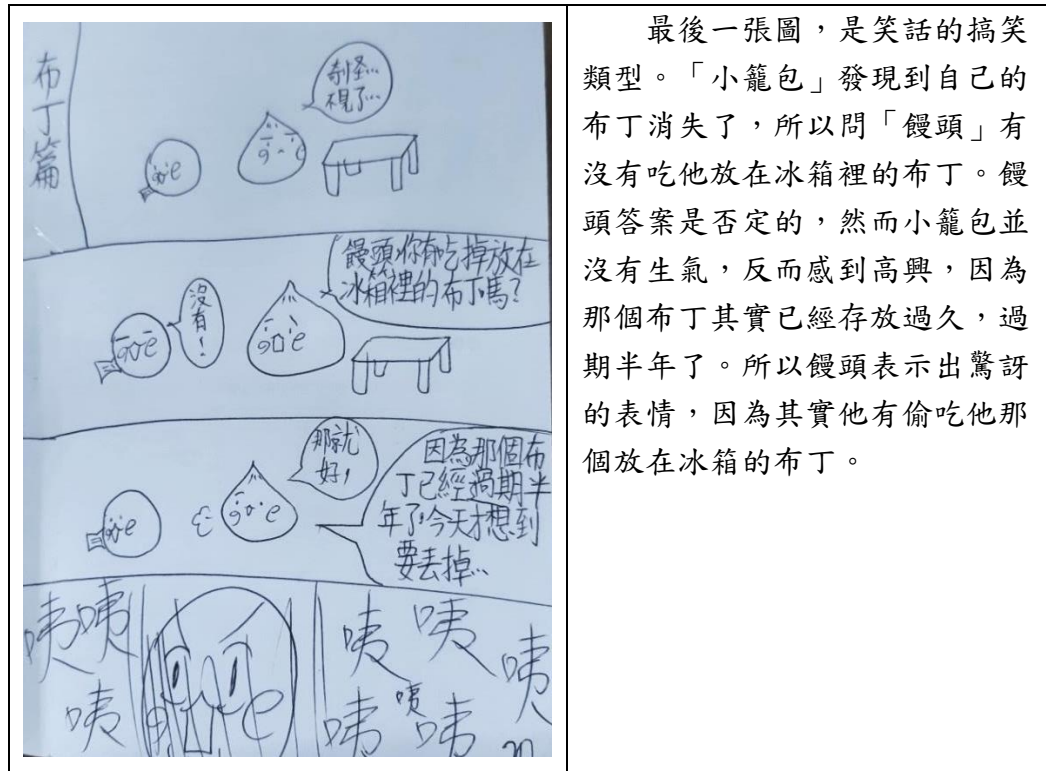 布丁篇
奇怪…
不見了…
饅頭,你有吃掉放在
冰箱裡的布丁嗎?
沒有!
那就
好,
因為那個布
丁已經過期半
年了,今天才想到
要丟掉…
咦咦
咦
咦咦
咦
咦
咦
咦
最後一張圖,是笑話的搞笑
類型。「小籠包」發現到自己的
布丁消失了,所以問「饅頭」有
沒有吃他放在冰箱裡的布丁。饅
頭答案是否定的,然而小籠包並
沒有生氣,反而感到高興,因為
那個布丁其實已經存放過久,過
期半年了。所以饅頭表示出驚訝
的表情,因為其實他有偷吃他那
個放在冰箱的布丁。